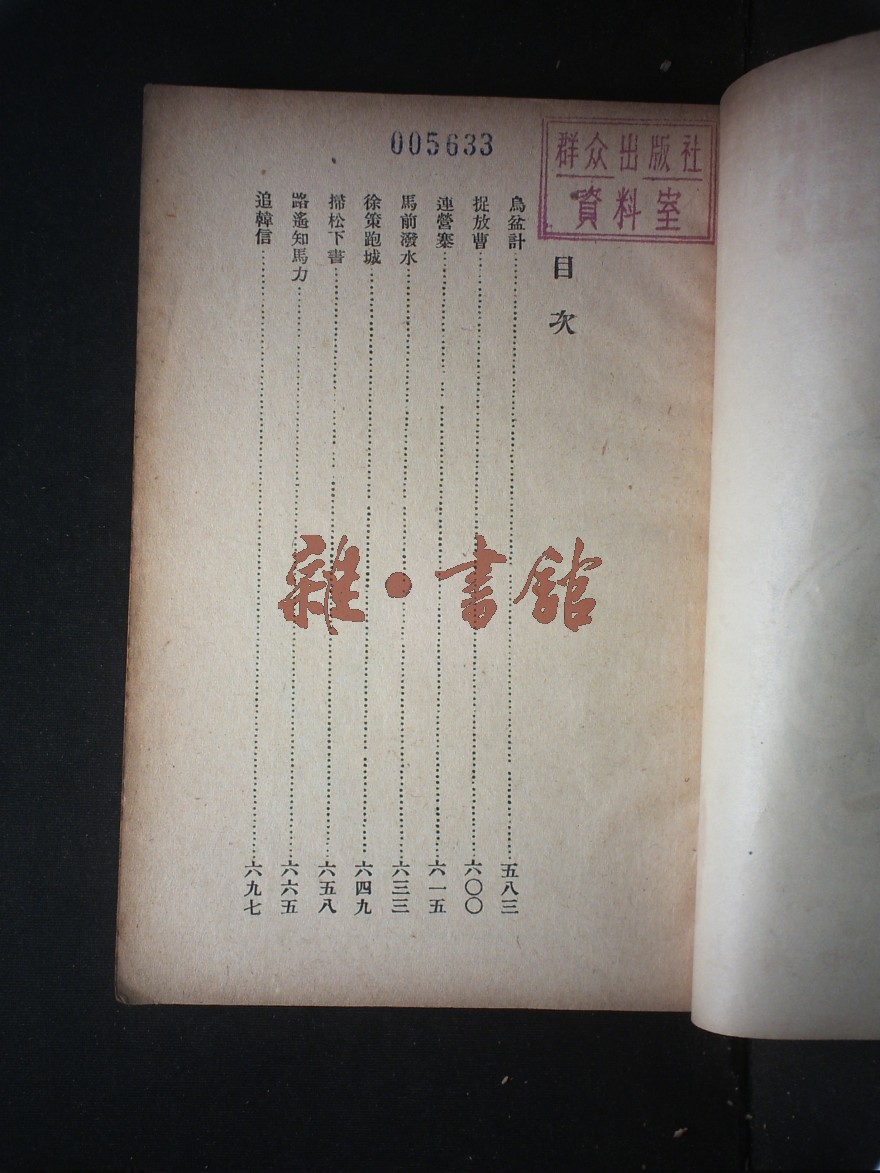 005633
群众出版社
資料室
目次
烏盆計……五八三
捉放曹……六〇〇
連營寨……六一五
馬前潑水……六三三
徐策跑城……六四九
掃松下書……六五八
路遙知馬力……六六五
追韓信……六九七
雜·書館